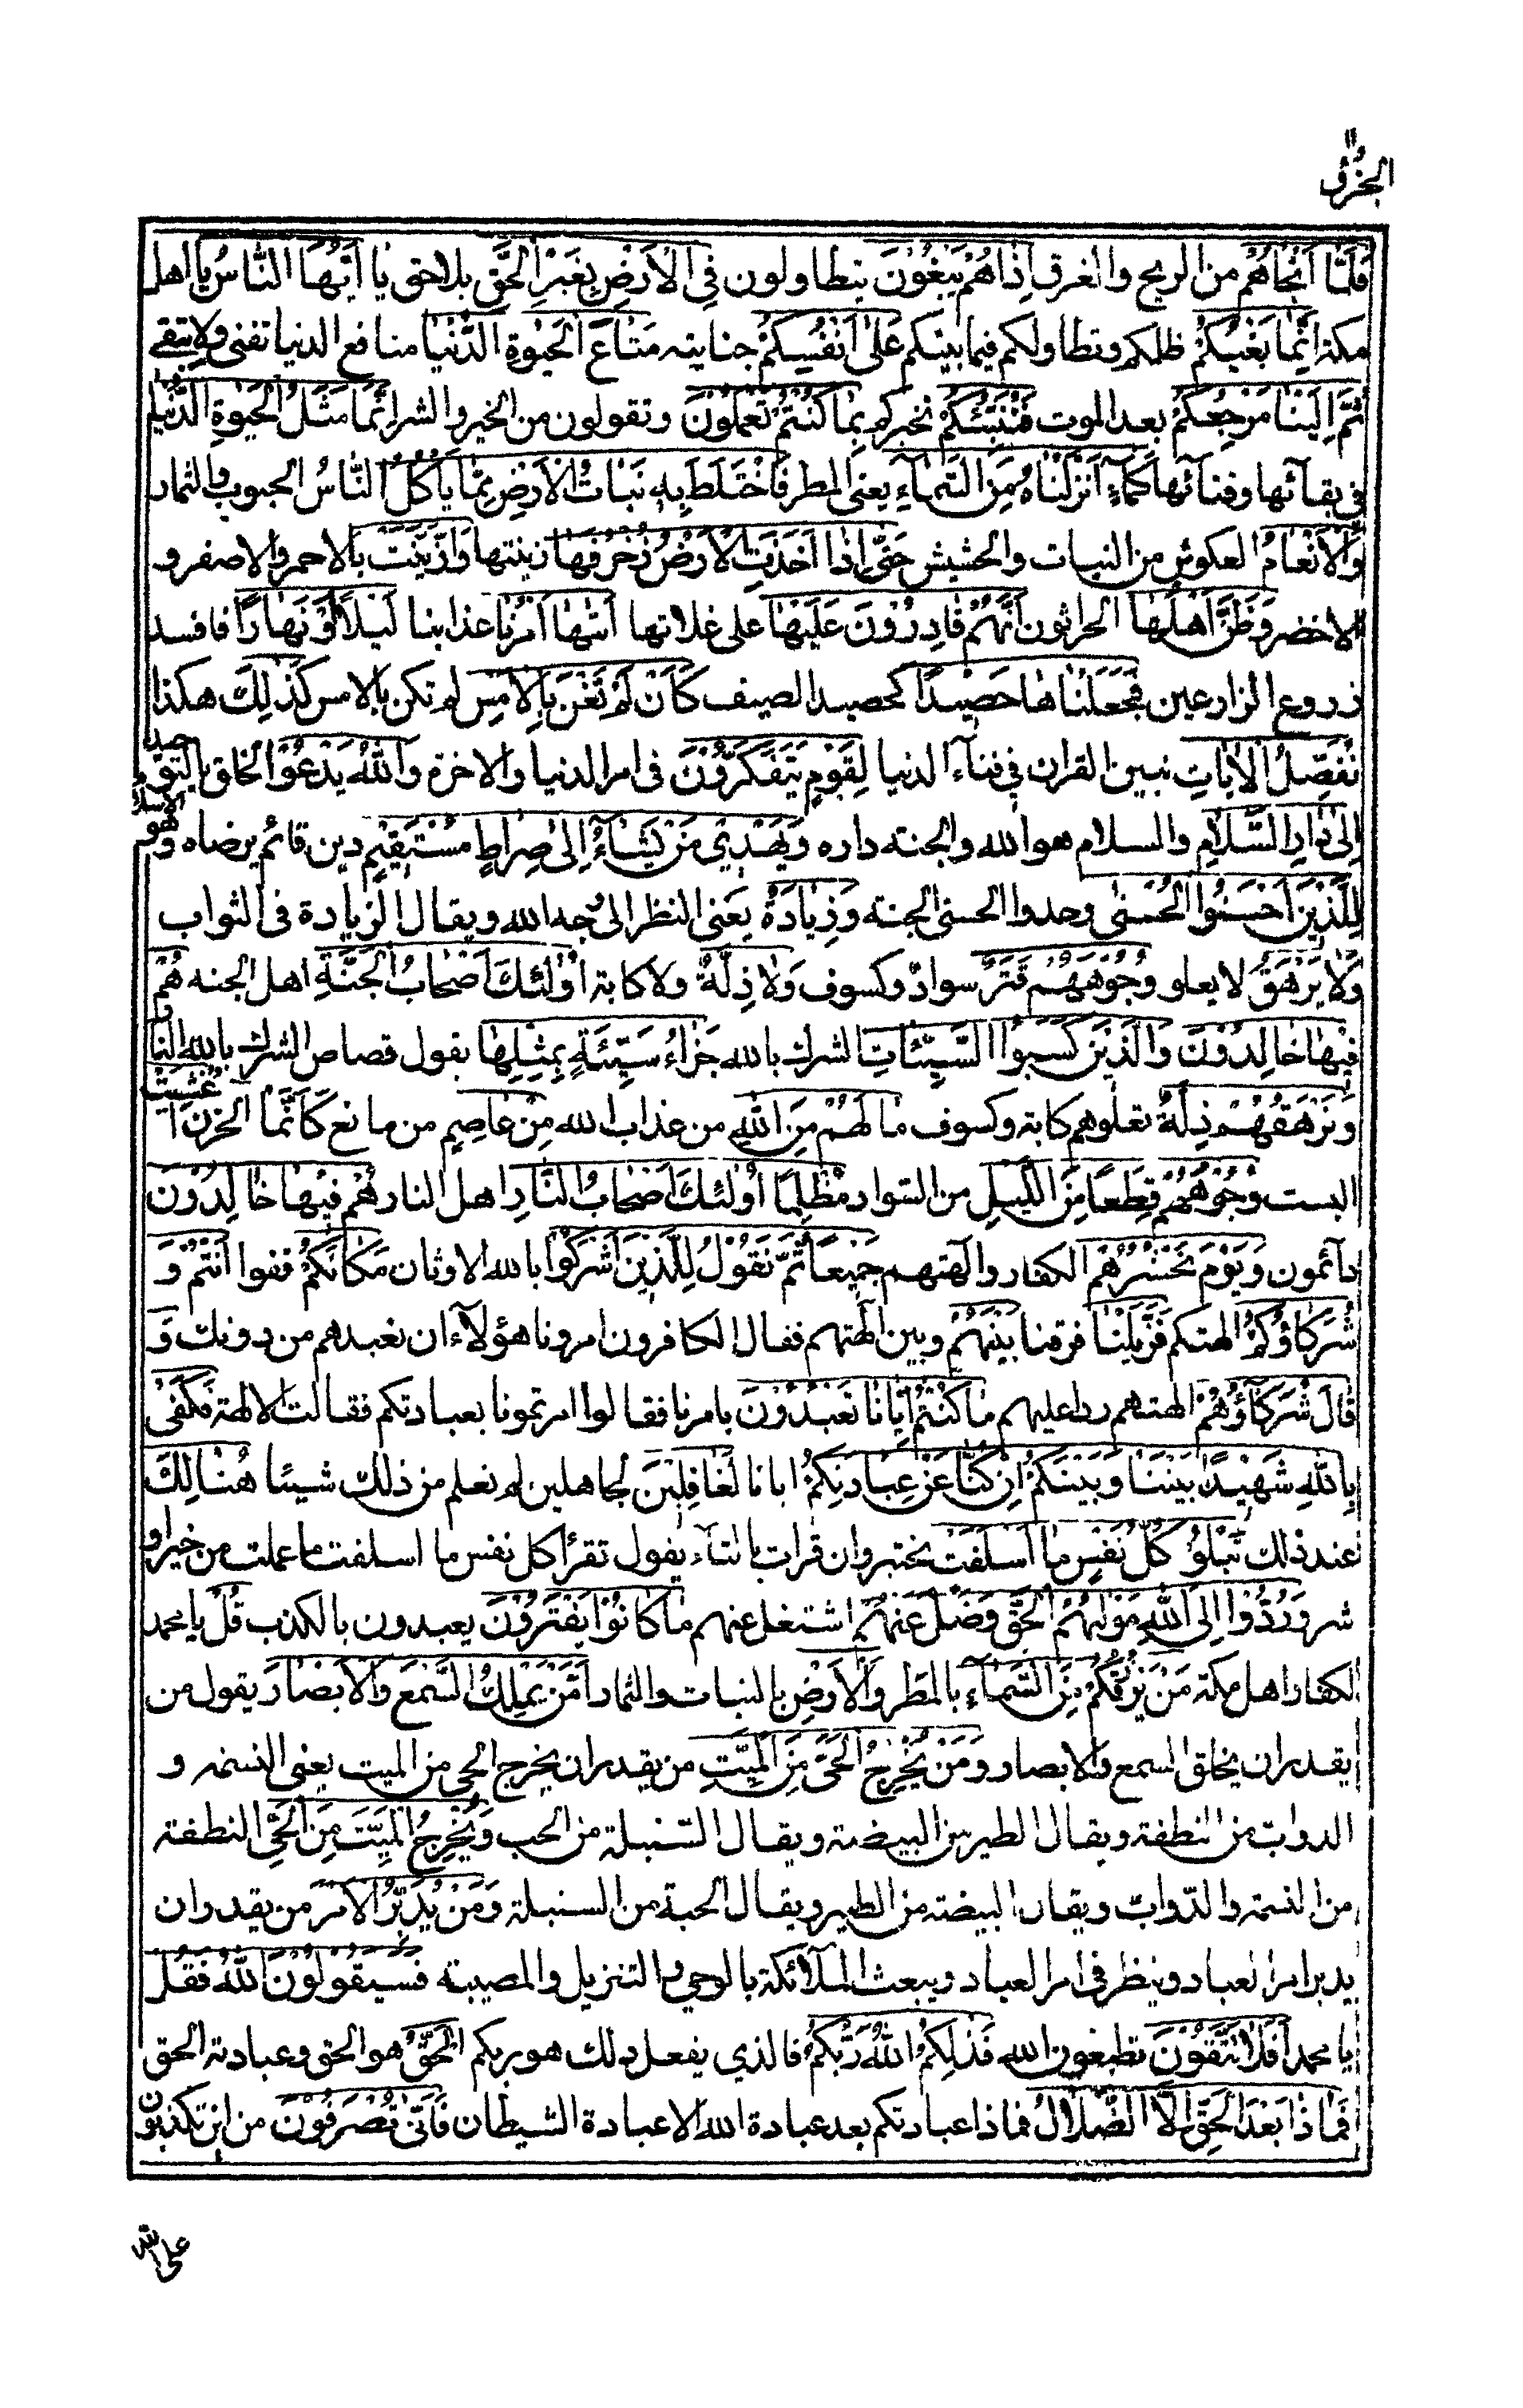 الجزؤ ١١
فَلَمَّا أَنْجَاهُمْ من الريح والغرق اِذَا هُمْ يَبْغُوْنَ يتطاولون فِي الْاَرْضِ بِغَيْرِ الْحَقِّ بلا حق يَا اَيُّهَا النَّاسُ يا اهل
مكة اِنَّمَا بَغْيُكُمْ ظلمكم وتطاولكم فيما بينكم عَلٰى اَنْفُسِكُمْ جنايته مَتَاعَ الْحَيٰوةِ الدُّنْيَا منافع الدنيا تفنى ولا تبقى
ثُمَّ اِلَيْنَا مَرْجِعُكُمْ بعد الموت فَنُنَبِّئُكُمْ نخبركم بِمَا كُنْتُمْ تَعْمَلُوْنَ وتقولون من الخير والشر اِنَّمَا مَثَلُ الْحَيٰوةِ الدُّنْيَا
في بقائها وفنائها كَمَاءٍ اَنْزَلْنَاهُ مِنَ السَّمَاءِ يعني المطر فَاخْتَلَطَ بِهٖ نَبَاتُ الْاَرْضِ مِمَّا يَأْكُلُ النَّاسُ الحبوب والثمار
وَالْاَنْعَامُ العكوش من النبات والحشيش حَتّٰى اِذَا اَخَذَتِ الْاَرْضُ زُخْرُفَهَا زينتها وَازَّيَّنَتْ بالاحمر والاصفر و
الاخضر وَظَنَّ اَهْلُهَا الحراثون اَنَّهُمْ قَادِرُوْنَ عَلَيْهَا على غلاتها اَتٰهَا اَمْرُنَا عذابنا لَيْلًا اَوْ نَهَارًا فافسد
زروع الزارعين فَجَعَلْنَاهَا حَصِيْدًا كحصيد الصيف كَاَنْ لَمْ تَغْنَ بِالْاَمْسِ لم تكن بالامس كَذٰلِكَ هكذا
نُفَصِّلُ الْاٰيَاتِ نبين القران في فناء الدنيا لِقَوْمٍ يَتَفَكَّرُوْنَ في امر الدنيا والاخرة وَاللّٰهُ يَدْعُوْا الخلق بالتوحيد
اِلٰى دَارِ السَّلَامِ والسلام هو الله والجنة داره وَيَهْدِيْ مَنْ يَشَاءُ اِلٰى صِرَاطٍ مُسْتَقِيْمٍ دين قائم يرضاه وهو الاسلام
لِلَّذِيْنَ اَحْسَنُوا الْحُسْنٰى وحدوا الحسنى الجنة وَزِيَادَةٌ يعنى النظر الى وجه الله ويقال الزيادة في الثواب
وَلَا يَرْهَقُ لا يعلو وُجُوْهَهُمْ قَتَرٌ سواد وكسوف وَلَا ذِلَّةٌ ولا كابة اُولٰئِكَ اَصْحَابُ الْجَنَّةِ اهل الجنة هُمْ
فِيْهَا خَالِدُوْنَ وَالَّذِيْنَ كَسَبُوا السَّيِّئَاتِ الشرك بالله جَزَاءُ سَيِّئَةٍ بِمِثْلِهَا يقول قصاص الشرك بالله النار
وَتَرْهَقُهُمْ ذِلَّةٌ تعلوهم كابة وكسوف مَا لَهُمْ مِنَ اللّٰهِ من عذاب الله مِنْ عَاصِمٍ من مانع كَاَنَّمَا اُغْشِيَتْ
البست وُجُوْهُهُمْ قِطَعًا مِنَ اللَّيْلِ من السواد مُظْلِمًا اُولٰئِكَ اَصْحَابُ النَّارِ اهل النار هُمْ فِيْهَا خَالِدُوْنَ
دائمون وَيَوْمَ نَحْشُرُهُمْ الكفار والهتهم جَمِيْعًا ثُمَّ نَقُوْلُ لِلَّذِيْنَ اَشْرَكُوْا بالله الاوثان مَكَانَكُمْ قفوا اَنْتُمْ وَ
شُرَكَاؤُكُمْ الهتكم فَزَيَّلْنَا فرقنا بَيْنَهُمْ وبين الهتهم فقال الكافرون امرونا هؤلاء ان نعبدهم من دونك وَ
قَالَ شُرَكَاؤُهُمْ الهتهم ردا عليهم مَا كُنْتُمْ اِيَّانَا تَعْبُدُوْنَ بامرنا فقالوا امرتمونا بعبادتكم فقالت الالهة فَكَفٰى
بِاللّٰهِ شَهِيْدًا بَيْنَنَا وَبَيْنَكُمْ اِنْ كُنَّا عَنْ عِبَادَتِكُمْ ايانا لَغَافِلِيْنَ لجاهلين لم نعلم من ذلك شيئا هُنَالِكَ
عند ذلك تَبْلُوْ كُلُّ نَفْسٍ مَا اَسْلَفَتْ تختبر وان قرات بالتاء يقول تقرأ كل نفس ما اسلفت ما عملت من خير او
شر وَرُدُّوْا اِلَى اللّٰهِ مَوْلٰهُمُ الْحَقِّ وَضَلَّ عَنْهُمْ اشتغل عنهم مَا كَانُوْا يَفْتَرُوْنَ يعبدون بالكذب قُلْ يا محمد
لكفار اهل مكة مَنْ يَرْزُقُكُمْ مِنَ السَّمَاءِ بالمطر وَالْاَرْضِ بالنبات والثمار اَمَّنْ يَمْلِكُ السَّمْعَ وَالْاَبْصَارَ يقول من
يقدر ان يخلق السمع والابصار وَمَنْ يُخْرِجُ الْحَيَّ مِنَ الْمَيِّتِ من يقدر ان يخرج الحي من الميت يعنى النسمة و
الدواب من النطفة ويقال الطير من البيضة ويقال السنبلة من الحب وَيُخْرِجُ الْمَيِّتَ مِنَ الْحَيِّ النطفة
من النسمة والدواب ويقال البيضة من الطير ويقال الحبة من السنبلة وَمَنْ يُدَبِّرُ الْاَمْرَ من يقدر ان
يدبر امر العباد وينظر في امر العباد ويبعث الملائكة بالوحي والتنزيل والمصيبة فَسَيَقُوْلُوْنَ اللّٰهُ فَقُلْ
يا محمد اَفَلَا تَتَّقُوْنَ تطيعون الله فَذٰلِكُمُ اللّٰهُ رَبُّكُمْ فالذي يفعل ذلك هو ربكم الْحَقُّ هو الحق وعبادته الحق
فَمَاذَا بَعْدَ الْحَقِّ اِلَّا الضَّلَالُ فماذا عبادتكم بعد عبادة الله الا عبادة الشيطان فَاَنّٰى تُصْرَفُوْنَ من اين تكذبون
على الله